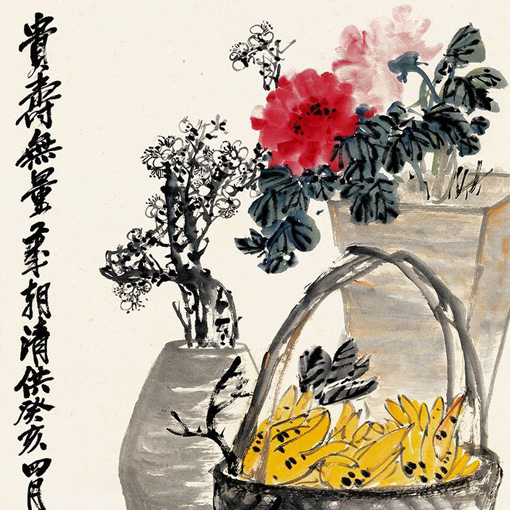 貴壽無量歲朝清供癸亥四月